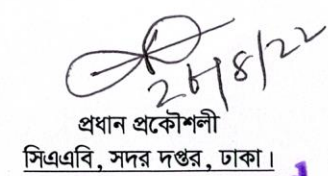 ২৮/৪/22
প্রধান প্রকৌশলী
সিএএবি, সদর দপ্তর, ঢাকা।